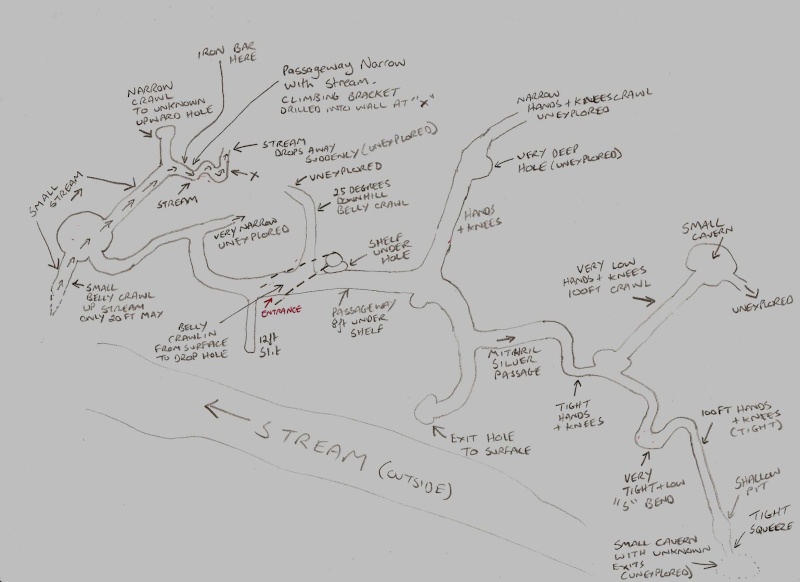 IRON BAR
HERE
Passageway Narrow
with Stream.
CLIMBING BRACKET
DRILLED INTO WALL AT "X"
NARROW
CRAWL
TO UNKNOWN
UPWARD HOLE
NARROW
HANDS + KNEES CRAWL
UNEXPLORED
STREAM
DROPS AWAY
SUDDENLY (UNEXPLORED)
X
VERY DEEP
HOLE (UNEXPLORED)
SMALL
STREAM
STREAM
UNEXPLORED
25 DEGREES
DOWNHILL
BELLY CRAWL
HANDS
+ KNEES
VERY NARROW
UNEXPLORED
SHELF
UNDER
HOLE
SMALL
CAVERN
VERY LOW
HANDS + KNEES
100FT CRAWL
UNEXPLORED
SMALL
BELLY CRAWL
UP STREAM
ONLY 20FT MAY
ENTRANCE
BELLY
CRAWL IN
FROM SURFACE
TO DROP HOLE
12ft
Slit
PASSAGEWAY
8ft UNDER
SHELF
MITHRIL
SILVER
PASSAGE
TIGHT
HANDS
+ KNEES
EXIT HOLE
TO SURFACE
100FT HANDS
+ KNEES
(TIGHT)
STREAM (OUTSIDE)
VERY
TIGHT + LOW
"S" BEND
SHALLOW
PIT
TIGHT
SQUEEZE
SMALL CAVERN
WITH UNKNOWN
EXITS
(UNEXPLORED)